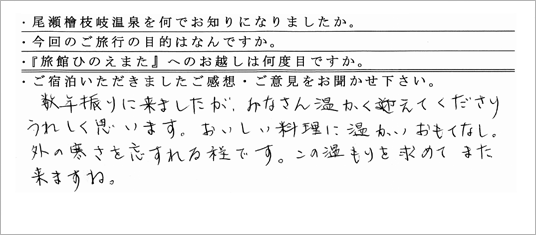 ・尾瀬檜枝岐温泉を何でお知りになりましたか。
・今回のご旅行の目的はなんですか。
・『旅館ひのえまた』へのお越しは何度目ですか。
・ご宿泊いただきましたご感想・ご意見をお聞かせ下さい。
数年振りに来ましたが、みなさん温かく迎えてくださり
うれしく思います。おいしい料理に温かいおもてなし。
外の寒さを忘すれる程です。この温もりを求めてまた
来ますね。